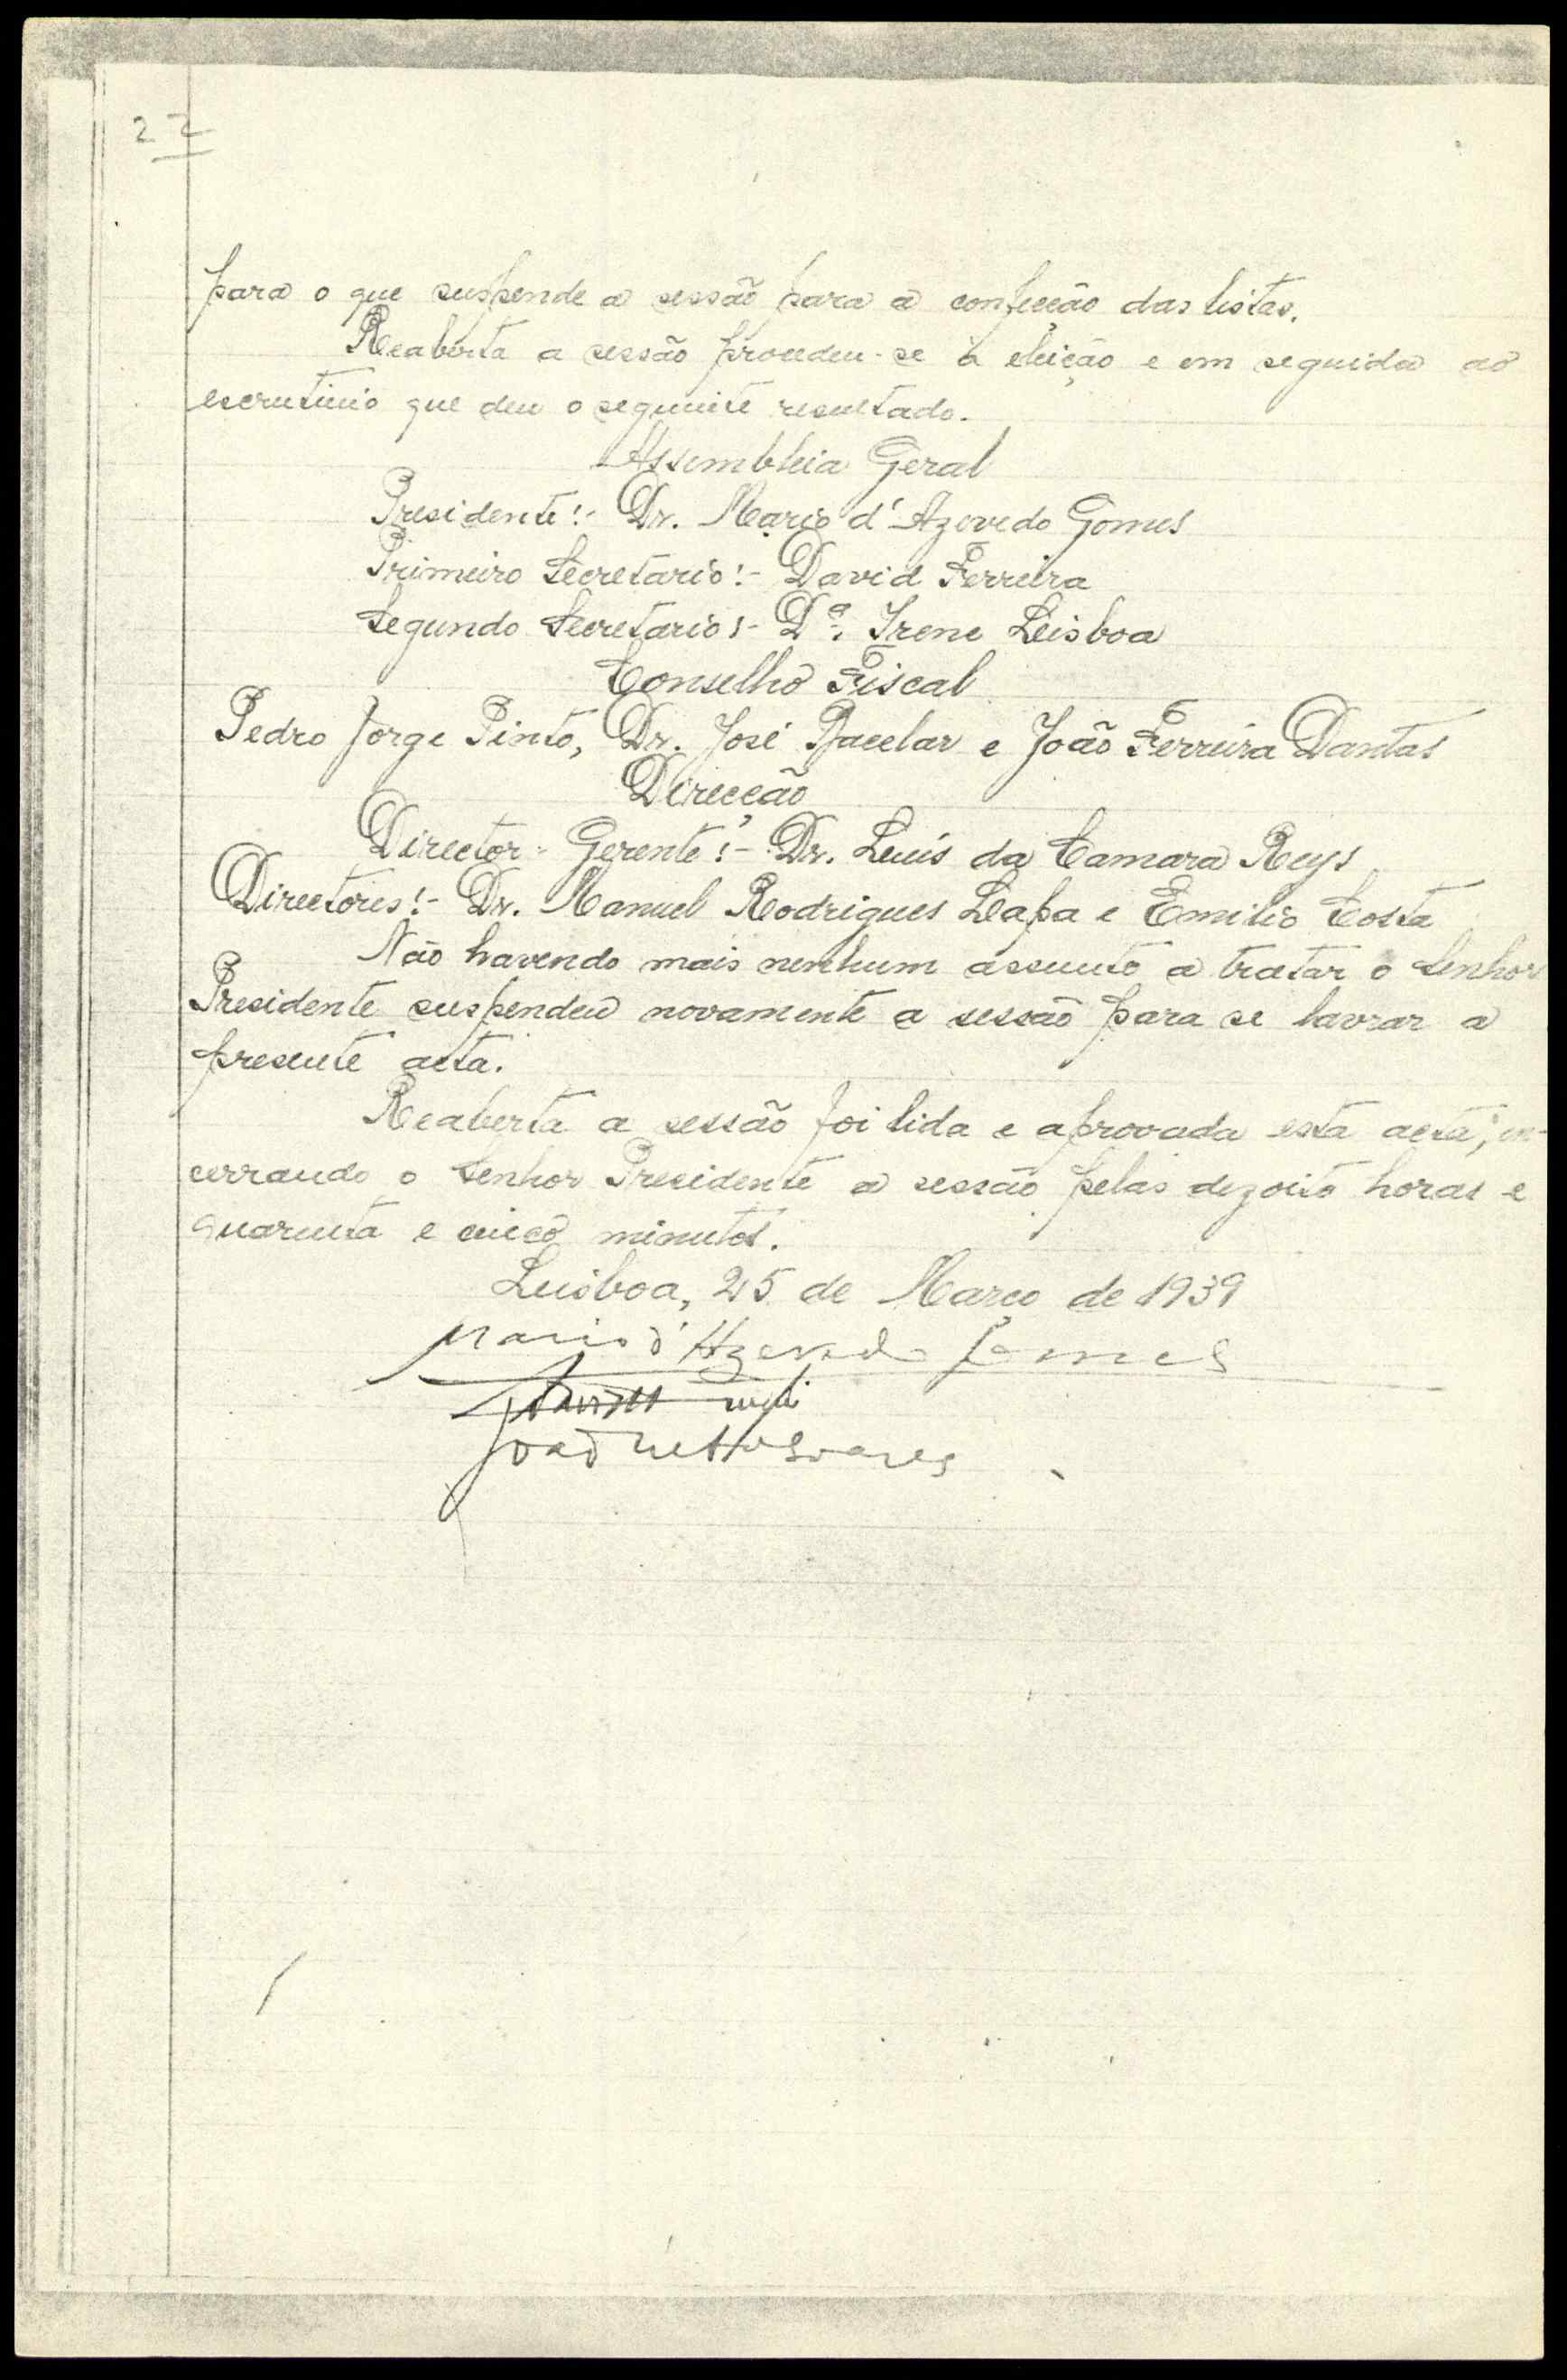 22
para o que suspende a sessão para a confecção das listas.
Reaberta a sessão procedeu-se à eleição e em seguida ao
escrutinio que deu o seguinte resultado.
Assembleia Geral
Presidente:- Dr. Mario d'Azevedo Gomes
Primeiro Secretario:- David Ferreira
Segundo Secretario:- Dª. Irene Lisboa
Conselho Fiscal
Pedro Jorge Pinto, Dr. José Bacelar e João Ferreira Dantas
Direcção
Director-Gerente:- Dr. Luís da Camara Reys
Directores:- Dr. Manuel Rodrigues Lapa e Emilio Costa
Não havendo mais nenhum assunto a tratar o Senhor
Presidente suspendeu novamente a sessão para se lavrar a
presente acta.
Reaberta a sessão foi lida e aprovada esta acta, en-
cerrando o Senhor Presidente a sessão pelas dezoito horas e
quarenta e cinco minutos.
Lisboa, 25 de Março de 1939
Mario d'Azevedo Gomes
João